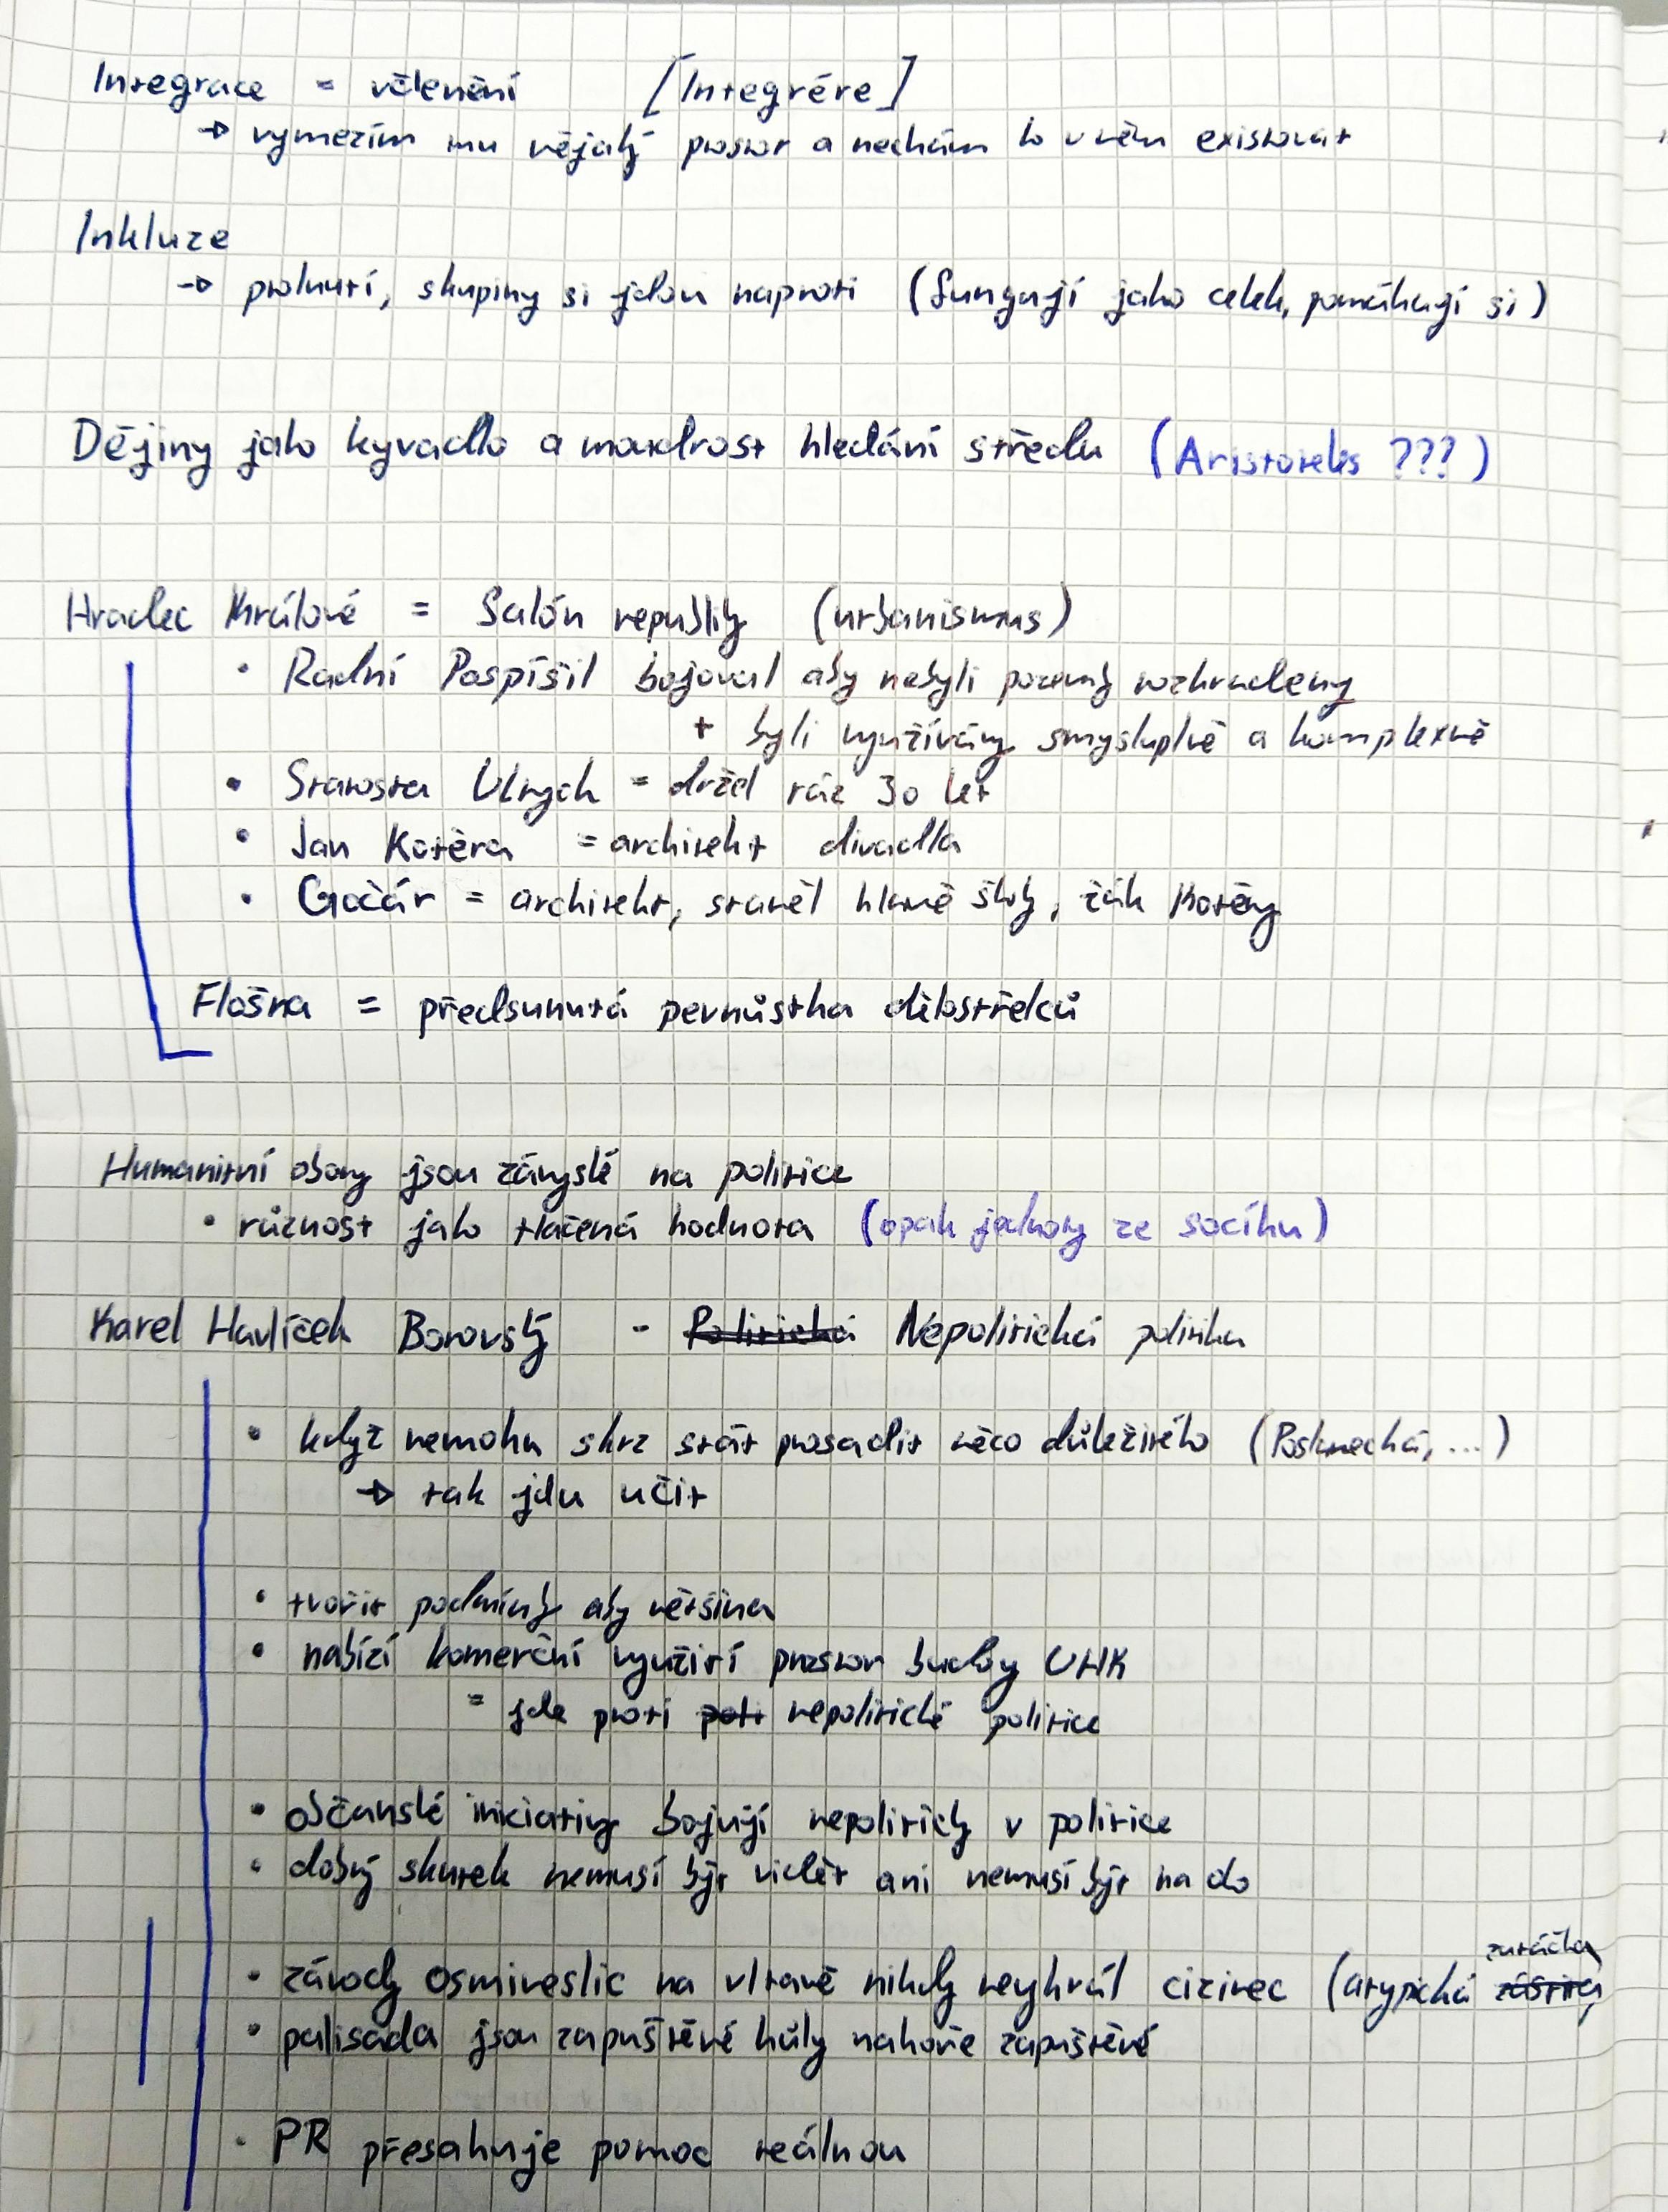 Integrace = včlenění [Integrére]
→ vymezím mu nějaký prostor a nechám to v něm existovat
Inkluze
→ prolnutí, skupiny si jdou naproti (fungují jako celek, pomáhají si)
Dějiny jako kyvadlo a moudrost hledání středu (Aristoteles ???)
Hradec Králové = Salón republiky (urbanismus)
• Radní Pospíšil bojoval aby nebyli pozemky rozhradeny
+ byli využívány smysluplně a komplexně
• Starosta Ulrych = držel ráz 30 let
• Jan Kotěra = architekt divadla
• Gočár = architekt, stavěl hlavně školy, žák Kotěry
Flošna = předsunutá pevnůstka dělostřelců
Humanitní obory jsou závyslé na politice
• různost jako tlačená hodnota (opak jednoty ze socíku)
Karel Havlíček Borovský - Politická Nepolitická politika
• když nemohu skrz stát prosadit něco důležitého (...)
→ tak jdu učit
• tvořit podmínky aby většina
• nabízí komerční využití prostor budovy UHK
= jde proti poti nepolitické politice
• občanské iniciativy bojují nepoliticky v politice
• dobrý skutek nemusí být vidět ani nemusí být na do
• závody osmiveslic na vltavě nikdy nevyhrál cizinec (atypická zatáčka
• palisáda jsou zapuštěvé kůly nahoře zapuštěvé
• PR přesahuje pomoc reálnou